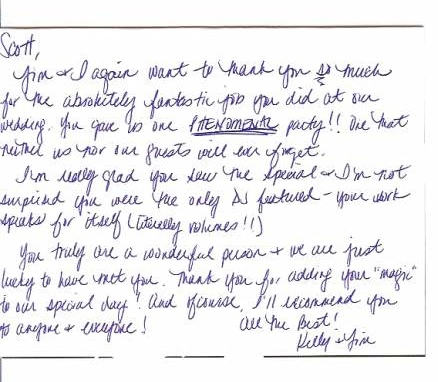 Scott,
Jim & I again want to thank you so much
for the absolutely fantastic job you did at our
wedding. You gave us one PHENOMENAL party!! One that
neither us nor our guests will ever forget.
I'm really glad you saw the special & I'm not
surprised you were the only DJ featured - your work
speaks for itself (literally volumes!!)
You truly are a wonderful person & we are just
lucky to have met you. Thank you for adding your "magic"
to our special day! And ofcourse, I'll recommend you
to anyone & everyone!
All the Best!
Kelly & Jim